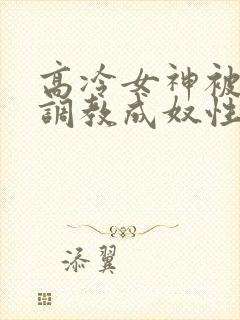 高冷女神被
調教成奴性
添翼